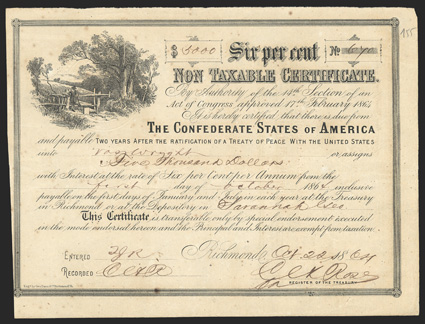 $ 5000 Six per cent No
NON TAXABLE CERTIFICATE.
By Authority of the 14th Section of an
Act of Congress approved 17th February 1864
It is hereby certified that there is due from
THE CONFEDERATE STATES OF AMERICA
and payable TWO YEARS AFTER THE RATIFICATION OF A TREATY OF PEACE WITH THE UNITED STATES
unto or assigns
Five Thousand Dollars
with Interest at the rate of Six per Cent per Annum from the
first day of October 1864 inclusive
payable on the first days of January and July in each year at the Treasury
in Richmond or at the Depository in Savannah
This Certificate is transferable only by special endorsement executed
in the mode endorsed hereon and the Principal and Interest are exempt from taxation.
Richmond Oct 22 1864
ENTERED
RECORDED
REGISTER OF THE TREASURY